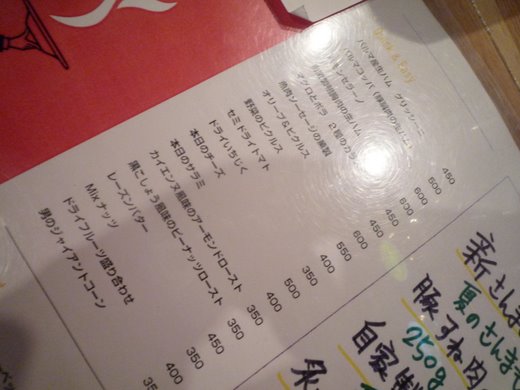 Quick & Easy
パルマ産生ハム グリッシーニ
パルマコッパ
ハモンセラーノ
の生ハム
マグロとボラ 2種のカラ
魚肉ソーセージの燻製
オリーブ&ピクルス
野菜のピクルス
セミドライトマト
ドライいちじく
本日のチーズ
本日のサラミ
カイエンヌ風味のアーモンドロースト
黒こしょう風味のピーナッツロースト
レーズンバター
Mixナッツ
ドライフルーツ盛り合わせ
男のジャイアントコーン
450
600
500
630
450
600
550
400
350
500
400
350
350
450
350
400
350
新さんま
夏のさんま
豚すね肉
250g
自家